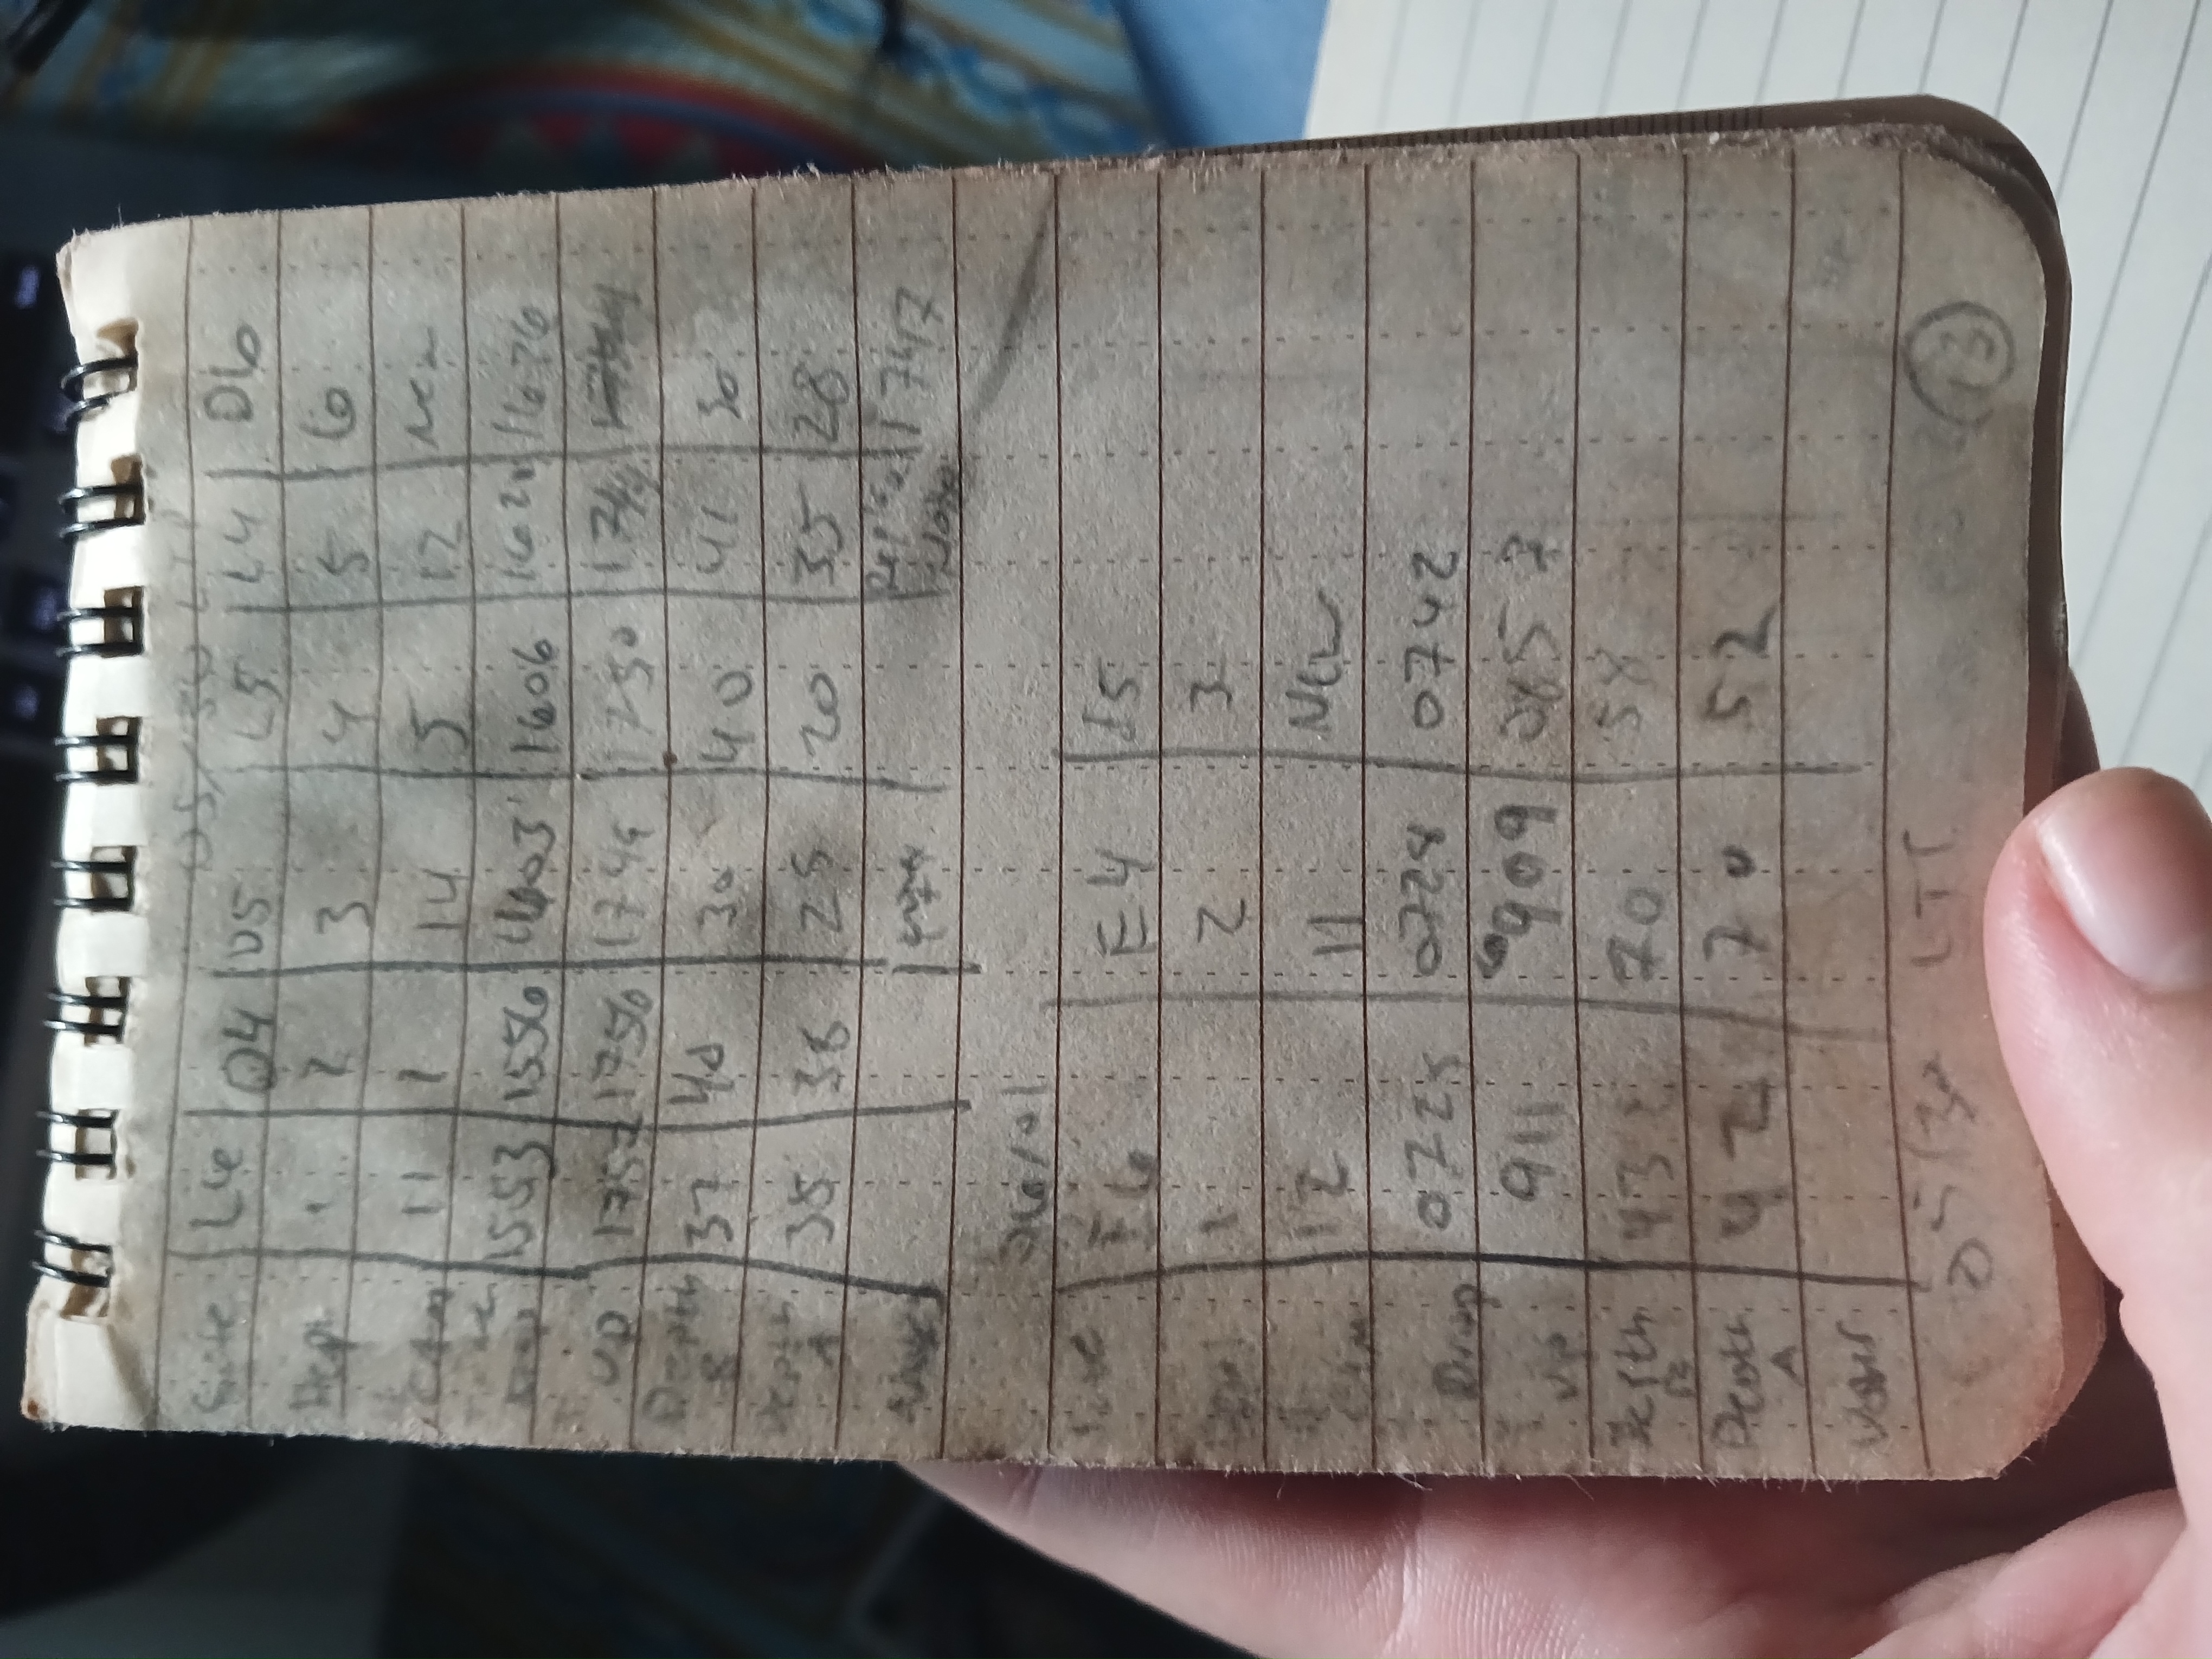 05/30 LTP
Site L6 D4 D5 L5 L4 D6
Depl 1 2 3 4 5 6
Cam 11 1 14 5 12 New
Drop 1553 1556 1603 1606 1620 1626
Up 1757 1756 1749 1750 1744
Depth B 37 40 30 40 41 30
Depth A 35 36 25 20 35 28
1747
06/01
Site E6 E4 E5
1 2 3
Cam 12 11 New
Drop 0725 0728 0742
Up 911 0909 0857
Depth B 43 70 58
Depth A 42 70 52
05/30 LTT 13